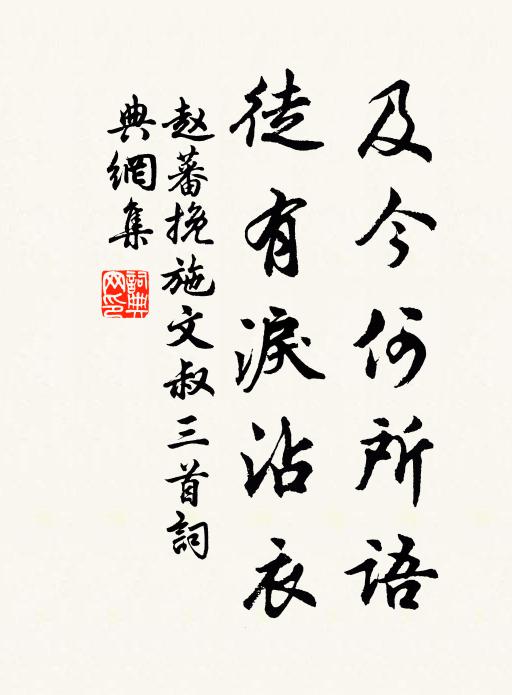 及今何所語
徒有淚沾衣
赵蕃挽施文叔三首詞
典網集
詞典
网印